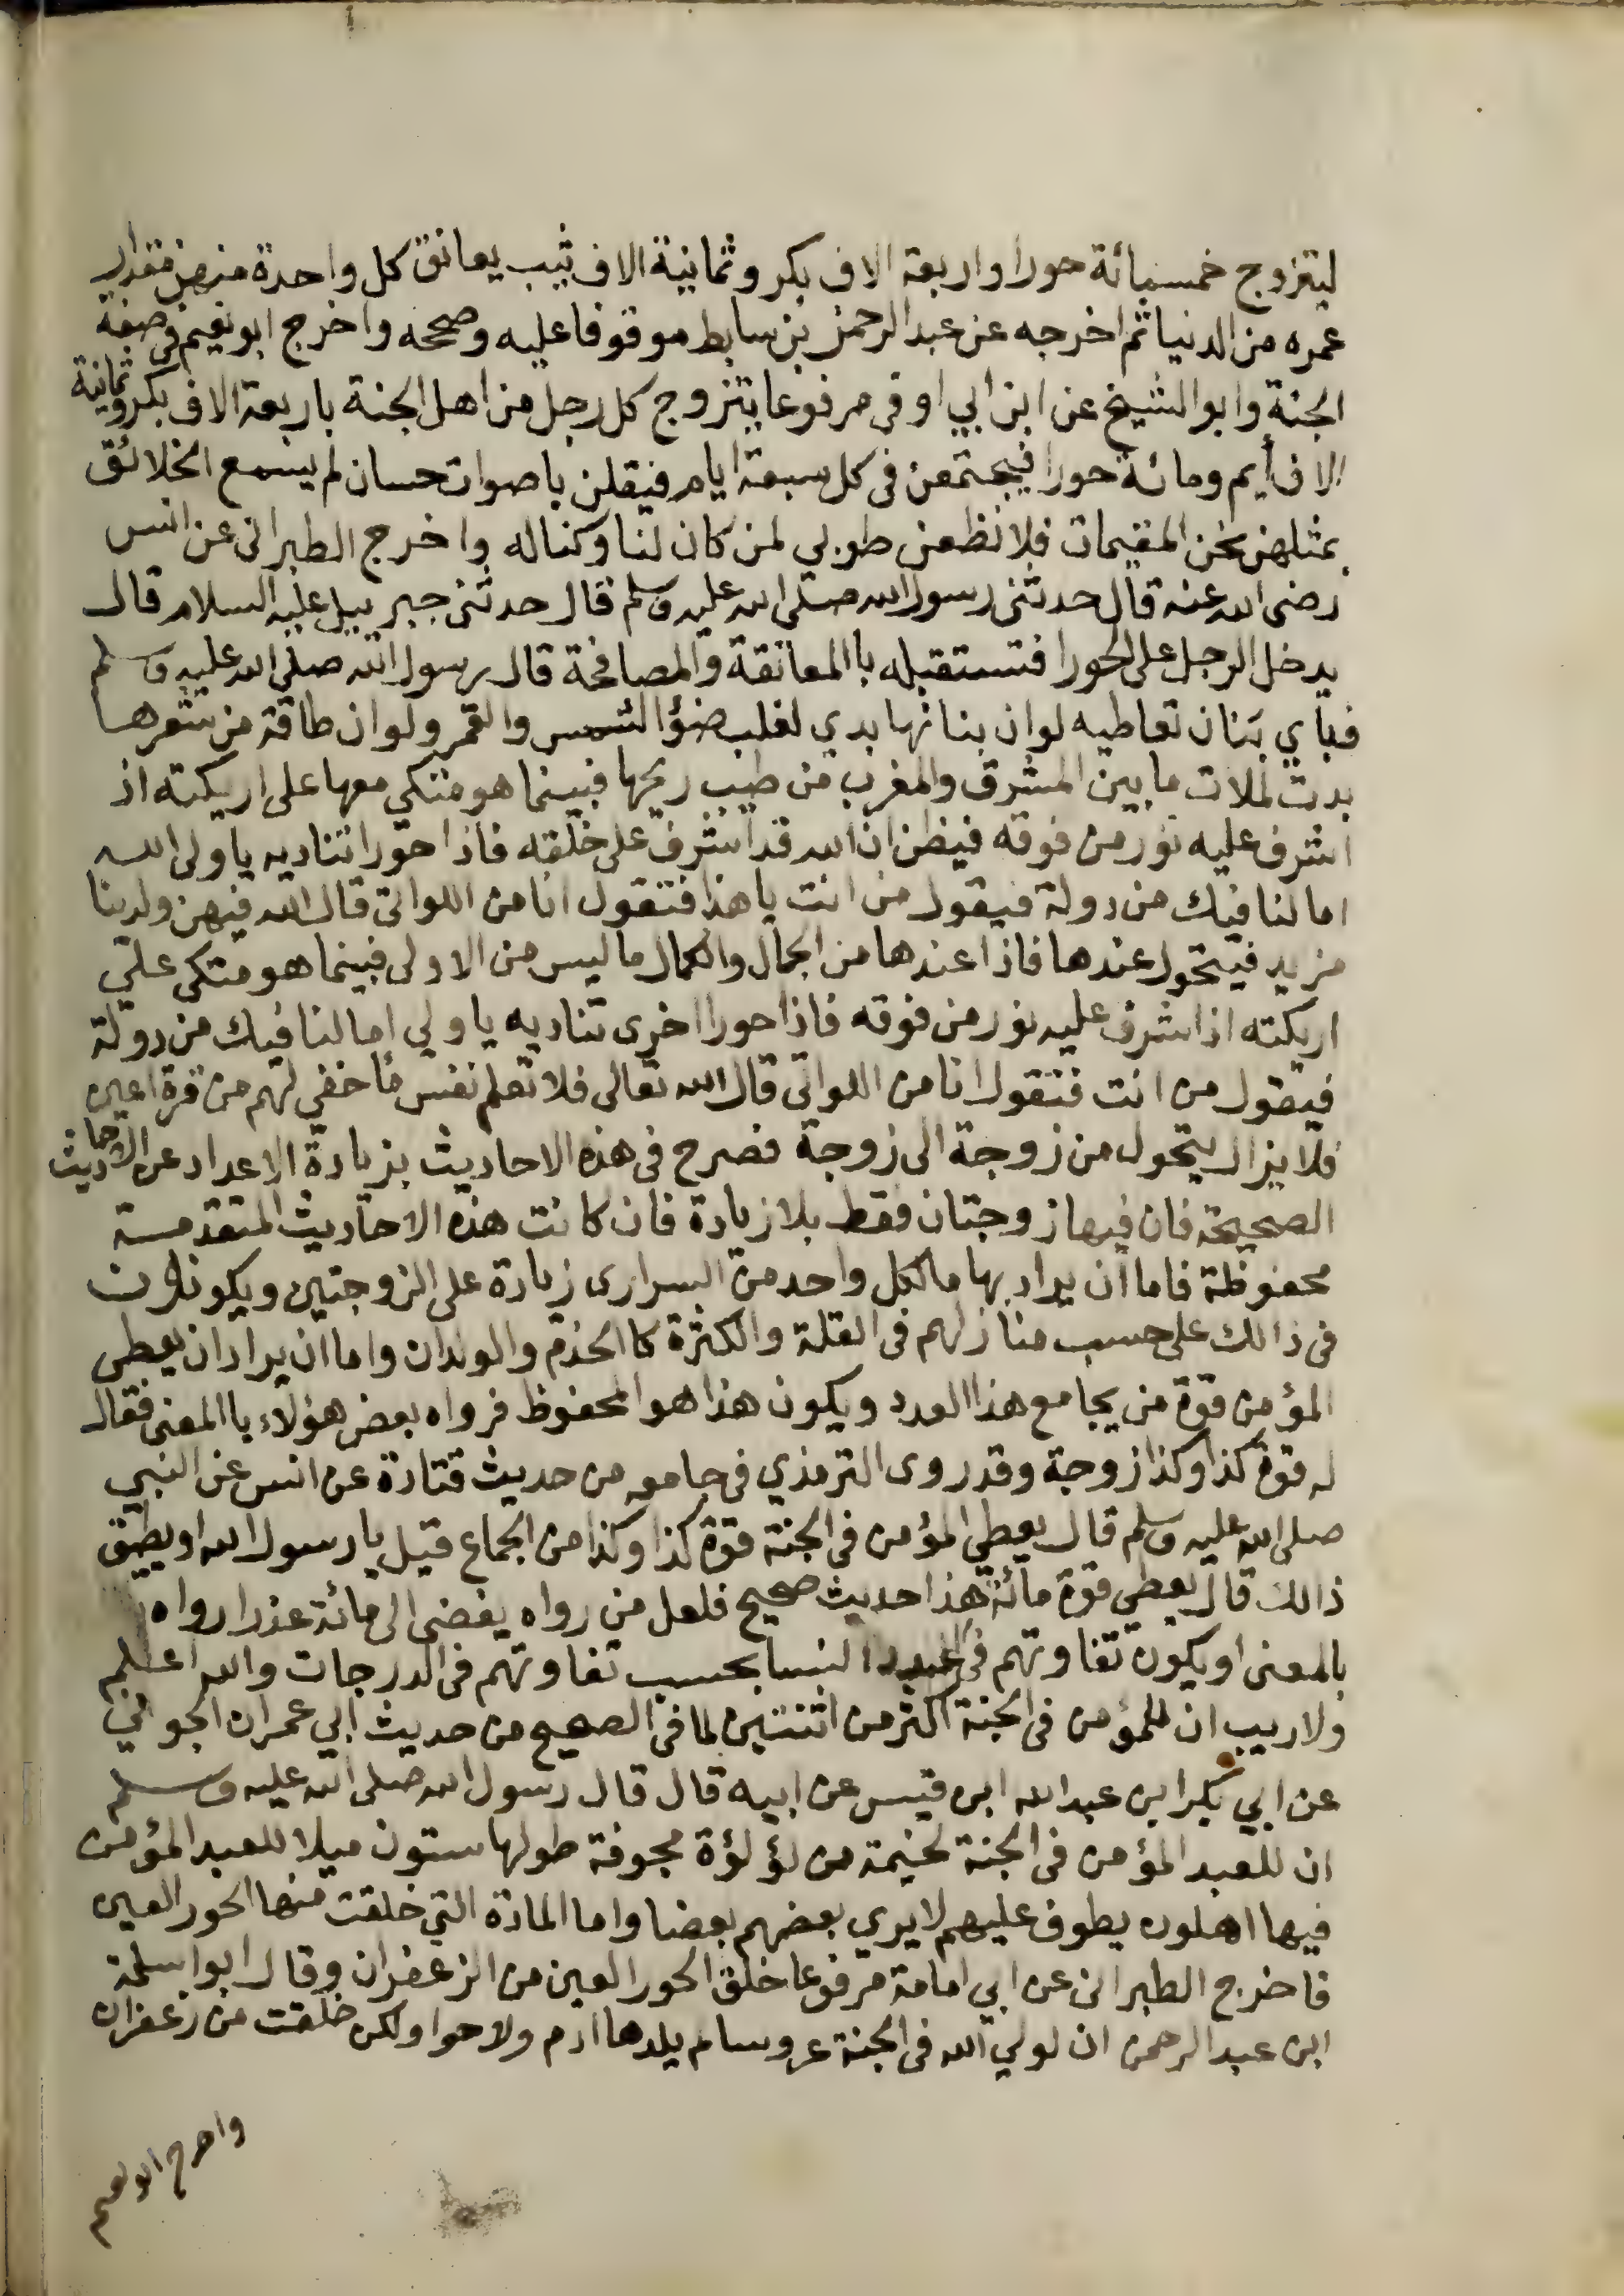 ليتزوج خمسمائة حورا واربعة الاف بكر وثمانية الاف ثيب يعانق كل واحدة منهن مقدار
عمره من الدنيا ثم اخرجه عن عبد الرحمن بن سابط موقوفا عليه وصححه واخرج ابو نعيم في صفة
الجنة وابو الشيخ عن ابن ابي اوفى مرفوعا يتزوج كل رجل من اهل الجنة باربعة الاف بكر وثمانية
الاف أيم ومائة حورا فيجتمعن في كل سبعة ايام فيقلن باصوات حسان لم يسمع الخلائق
بمثلهن نحن المقيمات فلا نظعن طوبي لمن كان لنا وكنا له واخرج الطبراني عن انس
رضي الله عنه قال حدثني رسول الله صلى الله عليه وسلم قال حدثني جبرييل عليه السلام قال
يدخل الرجل على الحورا فتستقبله باالمعانقة والمصافحة قال رسول الله صلى الله عليه وسلم
فباي بنان تعاطيه لو ان بنانها بدي لغلب ضؤ الشمس والقمر ولو ان طاقة من شعرها
بدت لملات ما بين المشرق والمغرب من طيب ريحها فبينما هو متكي معها على اريكته اذ
اشرف عليه نور من فوقه فيظن ان الله قد اشرف على خلقه فاذا حورا تناديه يا ولي الله
اما لنا فيك من دولة فيقول من انت يا هذا فتقول انا من اللواتي قال الله فيهن ولدينا
مزيد فيتحول عندها فاذا عندها من الجمال والكمال ما ليس من الاولى فبينما هو متكى علي
اريكته اذ اشرف عليه نور من فوقه فاذا حورا اخرى تناديه يا ولي اما لنا فيك من دولة
فيقول من انت فتقول انا من اللواتي قال الله تعالى فلا تعلم نفس ما خفي لهم من قرة اعين
فلا يزال يتحول من زوجة الى زوجة فصرح في هذه الاحاديث بزيادة الاعداد عن الاحاديث
الصحيحة فان فيها زوجتان فقط بلا زيادة فان كانت هذه الاحاديث المتقدمة
محفوظة فاما ان يراد بها ما لكل واحد من السراري زيادة على الزوجتين ويكونون
في ذالك على حسب منازلهم في القلة والكثرة كاالخدم والولدان واما ان يراد ان يعطى
المؤمن قوة من يجامع هذا العدد ويكون هذا هو المحفوظ فرواه بعض هؤلاء باالمعنى فقال
له قوة كذا وكذا زوجة وقد روى الترمذي في جامعه من حديث قتادة عن انس عن النبي
صلى الله عليه وسلم قال يعطي المؤمن في الجنة قوة كذا وكذا من الجماع قيل يا رسول الله او يطيق
ذالك قال يعطي قوة مائة هذا حديث صحيح فلعل من رواه يفضي الى مائة عذرا رواه
بالمعنى او يكون تفاوتهم في عدد النسا بحسب تفاوتهم في الدرجات والله اعلم
ولا ريب ان للمؤمن في الجنة اكثر من اثنتين لما في الصحيح من حديث ابي عمران الجوني
عن ابي بكر ابن عبد الله ابن قيس عن ابيه قال قال رسول الله صلى الله عليه وسلم
ان للعبد المؤمن في الجنة لخيمة من لؤلؤة مجوفة طولها ستون ميلا للعبد المؤمن
فيها اهلون يطوف عليهم لا يري بعضهم بعضا واما المادة التي خلقت منها الحور العين
فاخرج الطبراني عن ابي امامة مرفوعا خلق الحور العين من الزعفران وقال ابوا سلمة
ابن عبد الرحمن ان لولي الله في الجنة عروسا لم يلدها ادم ولا حوا ولكن خلقت من زعفران
واخرج ابو نعيم